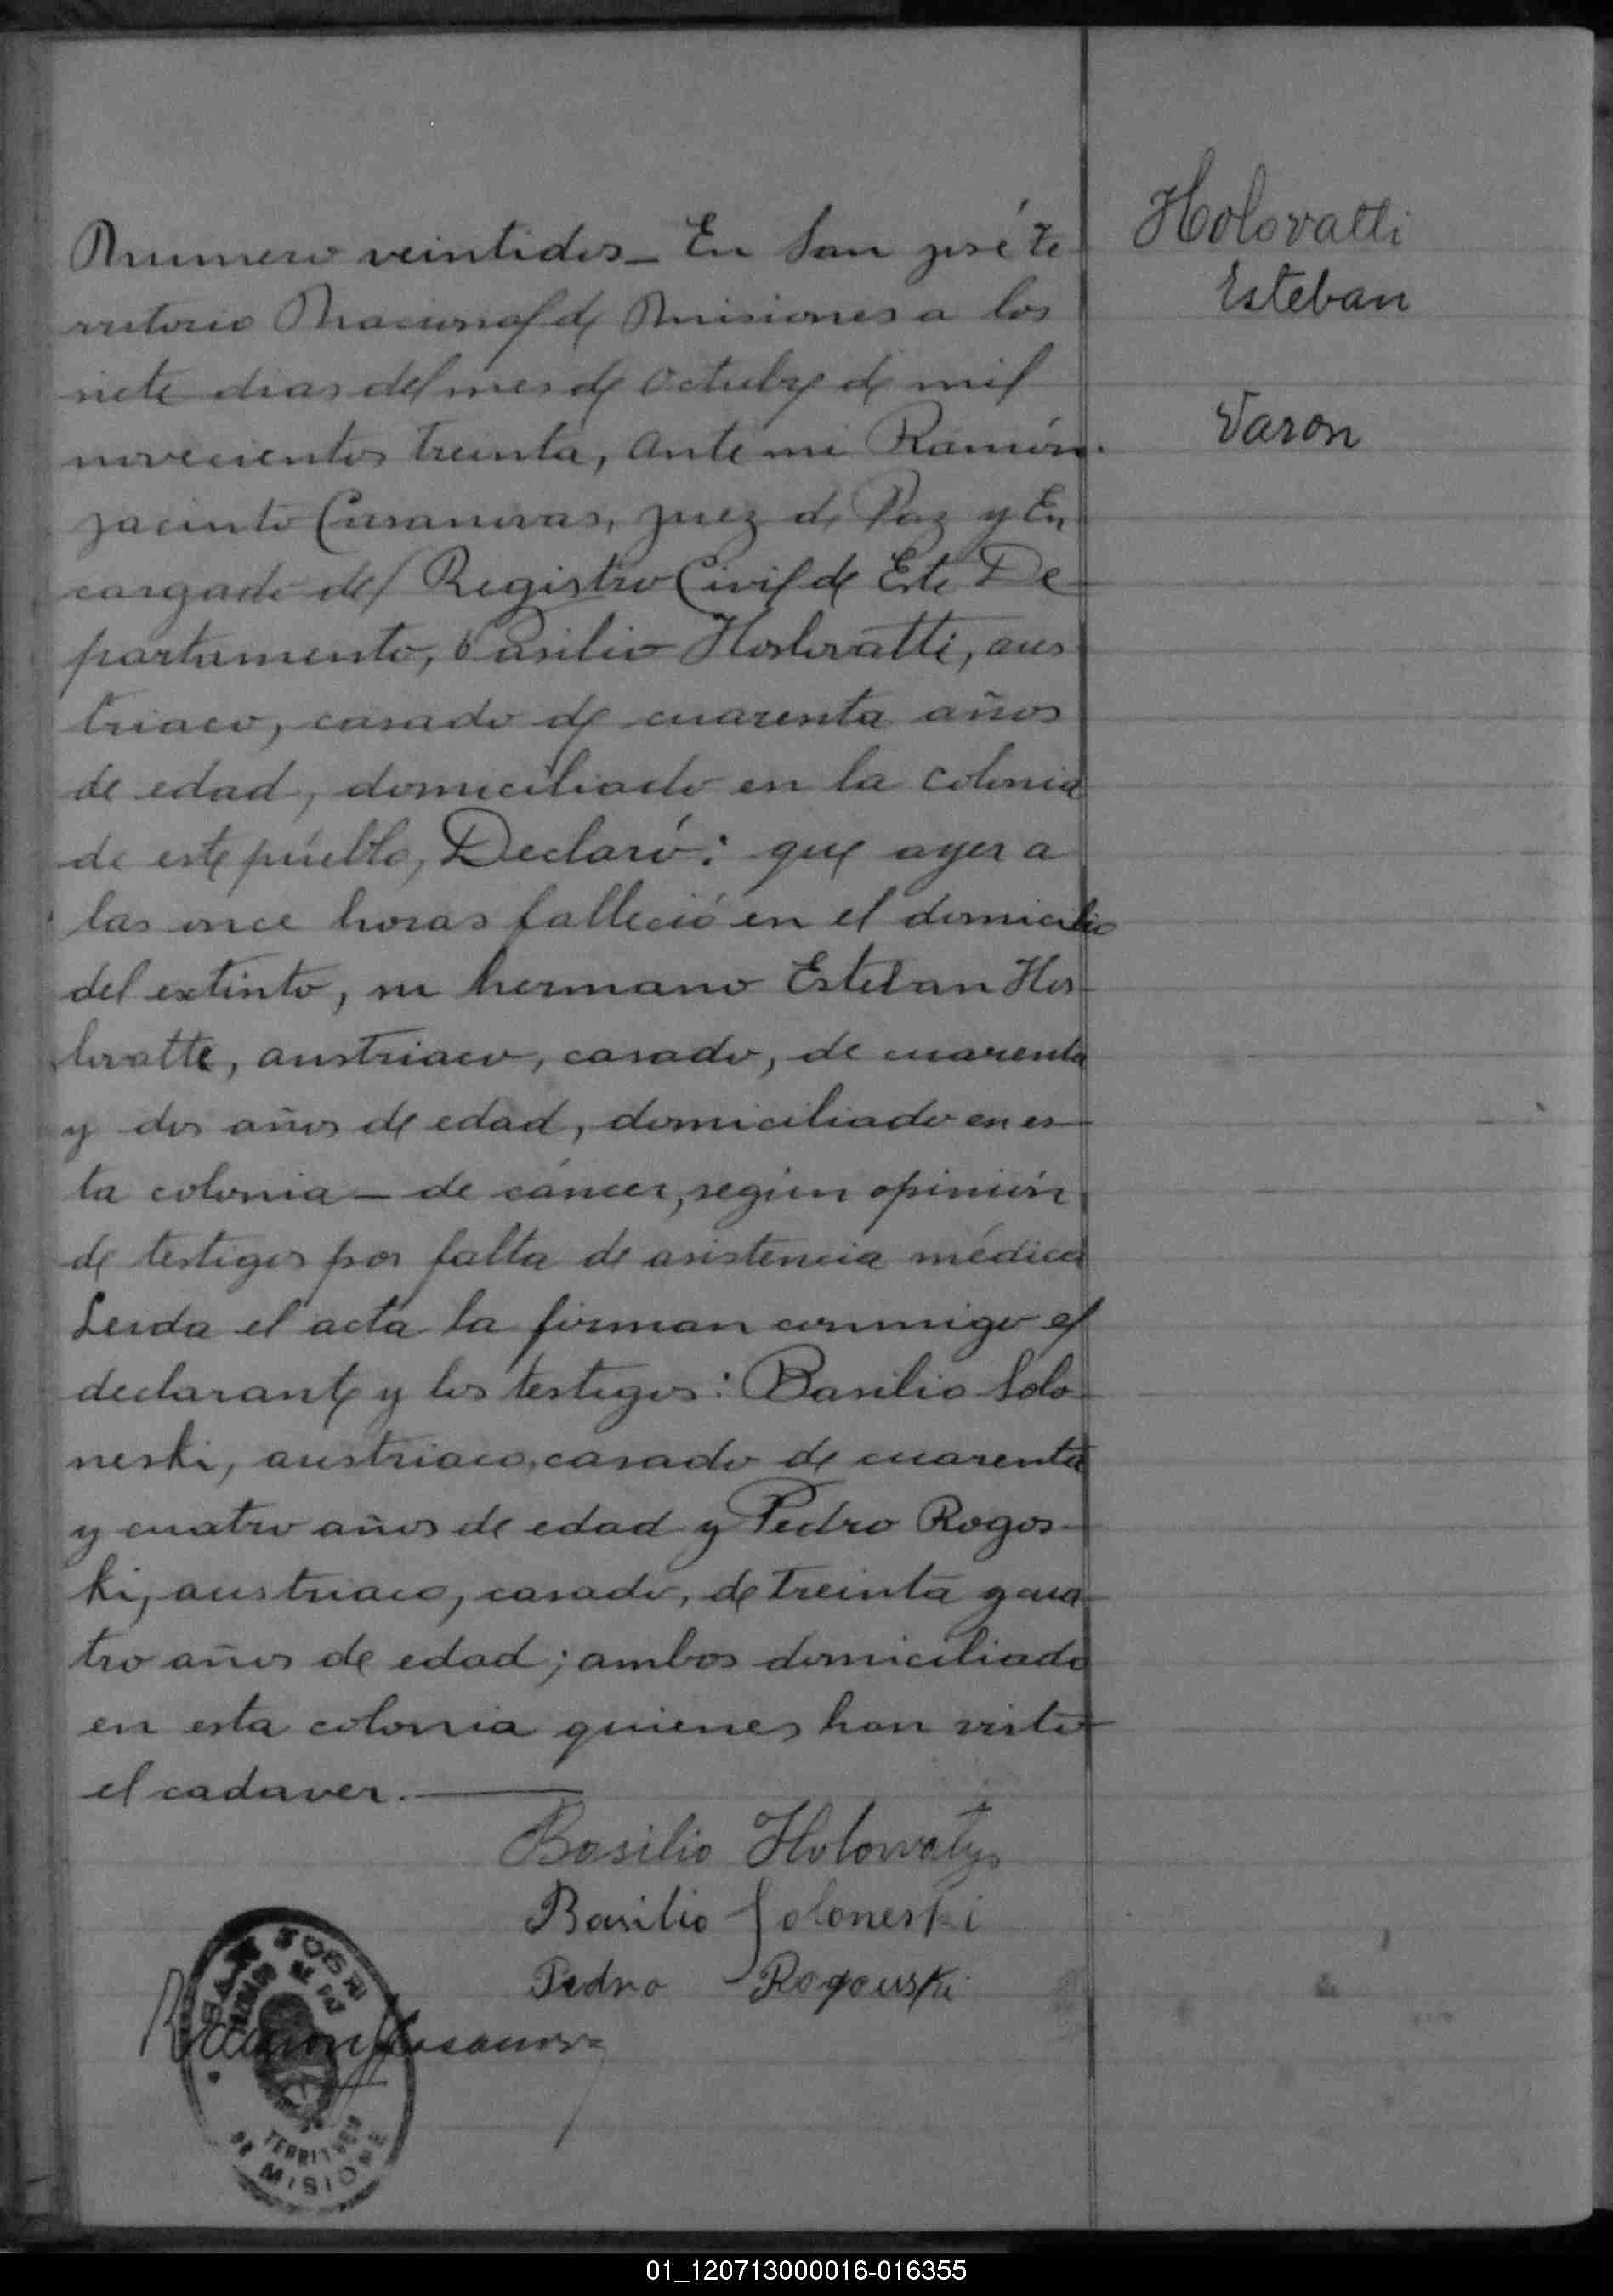 Holovatti
Esteban
Varon
Numero veintidos _ En San José Te
rritorio Nacional de Misiones a los
siete dias del mes de Octubre de mil
novecientos treinta, ante mi Ramón
Jacinto Casanovas, Juez de Paz y En
cargado del Registro Civil de Este De
partamento, Basilio Hoslovatti, aus
triaco, casado de cuarenta años
de edad, domiciliado en la colonia
de este pueblo, Declaró: que ayer a
las once horas falleció en el domicilio
del extinto, su hermano Esteban Hos
lovatte, austriaco, casado, de cuarenta
y dos años de edad, domiciliado en es
ta colonia — de cáncer, según opinión
de testigos por falta de asistencia médica
Leida el acta la firman conmigo el
declarante y los testigos: Basilio Solo
neski, austriaco, casado de cuarenta
y cuatro años de edad y Pedro Rogos
ki, austriaco, casado, de treinta y cua
tro años de edad; ambos domiciliado
en esta colonia quienes han visto
el cadaver. —
Basilio Holowatys
Basilio Soloneski
Pedro Rogouski
Ramon J Casanova
SAN JOSE
JUEZ DE PAZ
TERRITORIO
DE MISIONES
01_120713000016-016355